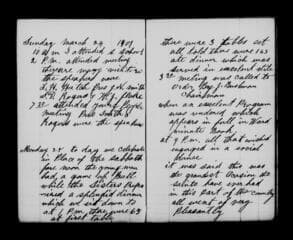 Sunday March 24 1901
10 a.m. I attended S. School
2 P.M. attended meeting
there were many visitors
the speakers were
L. H. Hatch Pres J. H. Smith
& H. Rogers & Pres J. Blake
7 30 attended young peoples
meeting Pres Smith &
Rogers were the speakers
Monday 25 to day we celebrate
in Place of the Sabbath
fore noon the young men
had a game of Ball
while the Sisters Prepa
ired a splendid dinner
which we sat down to
at 1 P.M. there were 63
at first table
there were 3 tables set
all told there were 163
ate dinner which was
served in excellent stile
3 30 meeting was called to
order Chairman
when an excellent Program
was rendered which
appears in full in Ward
at 9 P.M. all that wished
engaged in a social
dance
it was said this was
the grandest
ever had
in this Part of the country
all went off very
Pleasantly